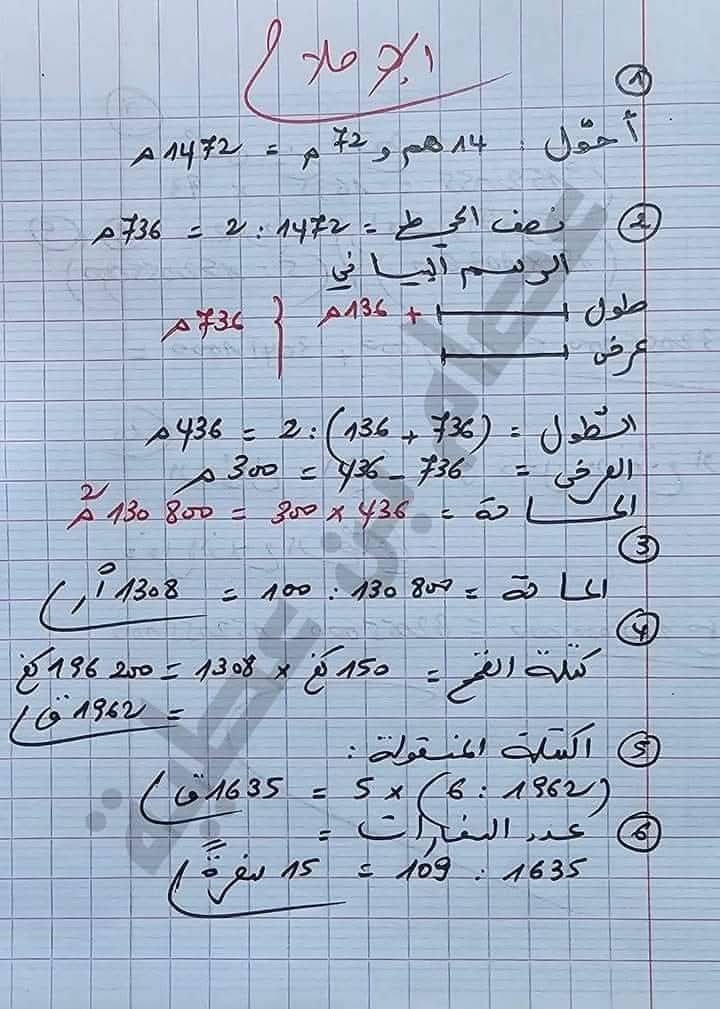 الإصلاح
①
أحوّل : 14 هم و 72 م = 1472 م
② نصف المحيط = 1472 : 2 = 736 م
الرسم البياني
طول + 136 م } 736 م
عرض
الطّول = (736 + 136) : 2 = 436 م
العرض = 736 - 436 = 300 م
المساحة = 436 × 300 = 130 800 م²
③
المساحة = 130 800 : 100 = 1308 آر
④
كتلة القمح = 150 كغ × 1308 = 196 200 كغ
= 1962 ق
⑤ الكتلة المنقولة :
(1962 : 6) × 5 = 1635 ق
⑥ عدد السفرات =
1635 : 109 = 15 سفرة